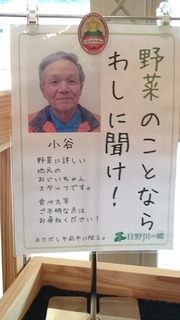 野菜のことなら
わしに聞け!
小谷
野菜に詳しい
地元の
おじいちゃん
スタッフです。
食べ方等
ご不明な点は
お尋ねください!
※ただし午前中に限る。
日野川の郷